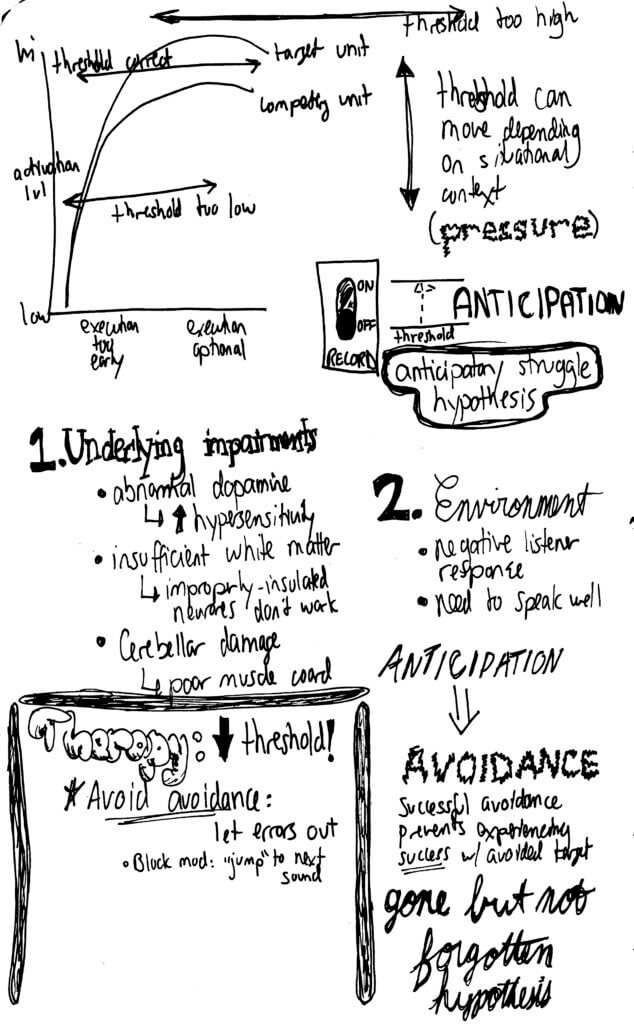 threshold too high
hi
threshold correct
target unit
competing unit
activation
lvl
threshold too low
low
execution
too
early
execution
optional
threshold can
move depending
on situational
context
(pressure)
ON
OFF
RECORD
threshold
ANTICIPATION
anticipatory struggle
hypothesis
1. Underlying impairments
• abnormal dopamine
↳ ↑ hypersensitivity
• insufficient white matter
↳ improperly-insulated
neurons don't work
• Cerebellar damage
↳ poor muscle coord
2. Environment
• negative listener
response
• need to speak well
ANTICIPATION
⇓
AVOIDANCE
successful avoidance
prevents experiencing
success w/ avoided target
gone but not
forgotten
hypothesis
Therapy: ↓ threshold!
* Avoid avoidance:
let errors out
• Block mod: "jump" to next
sound